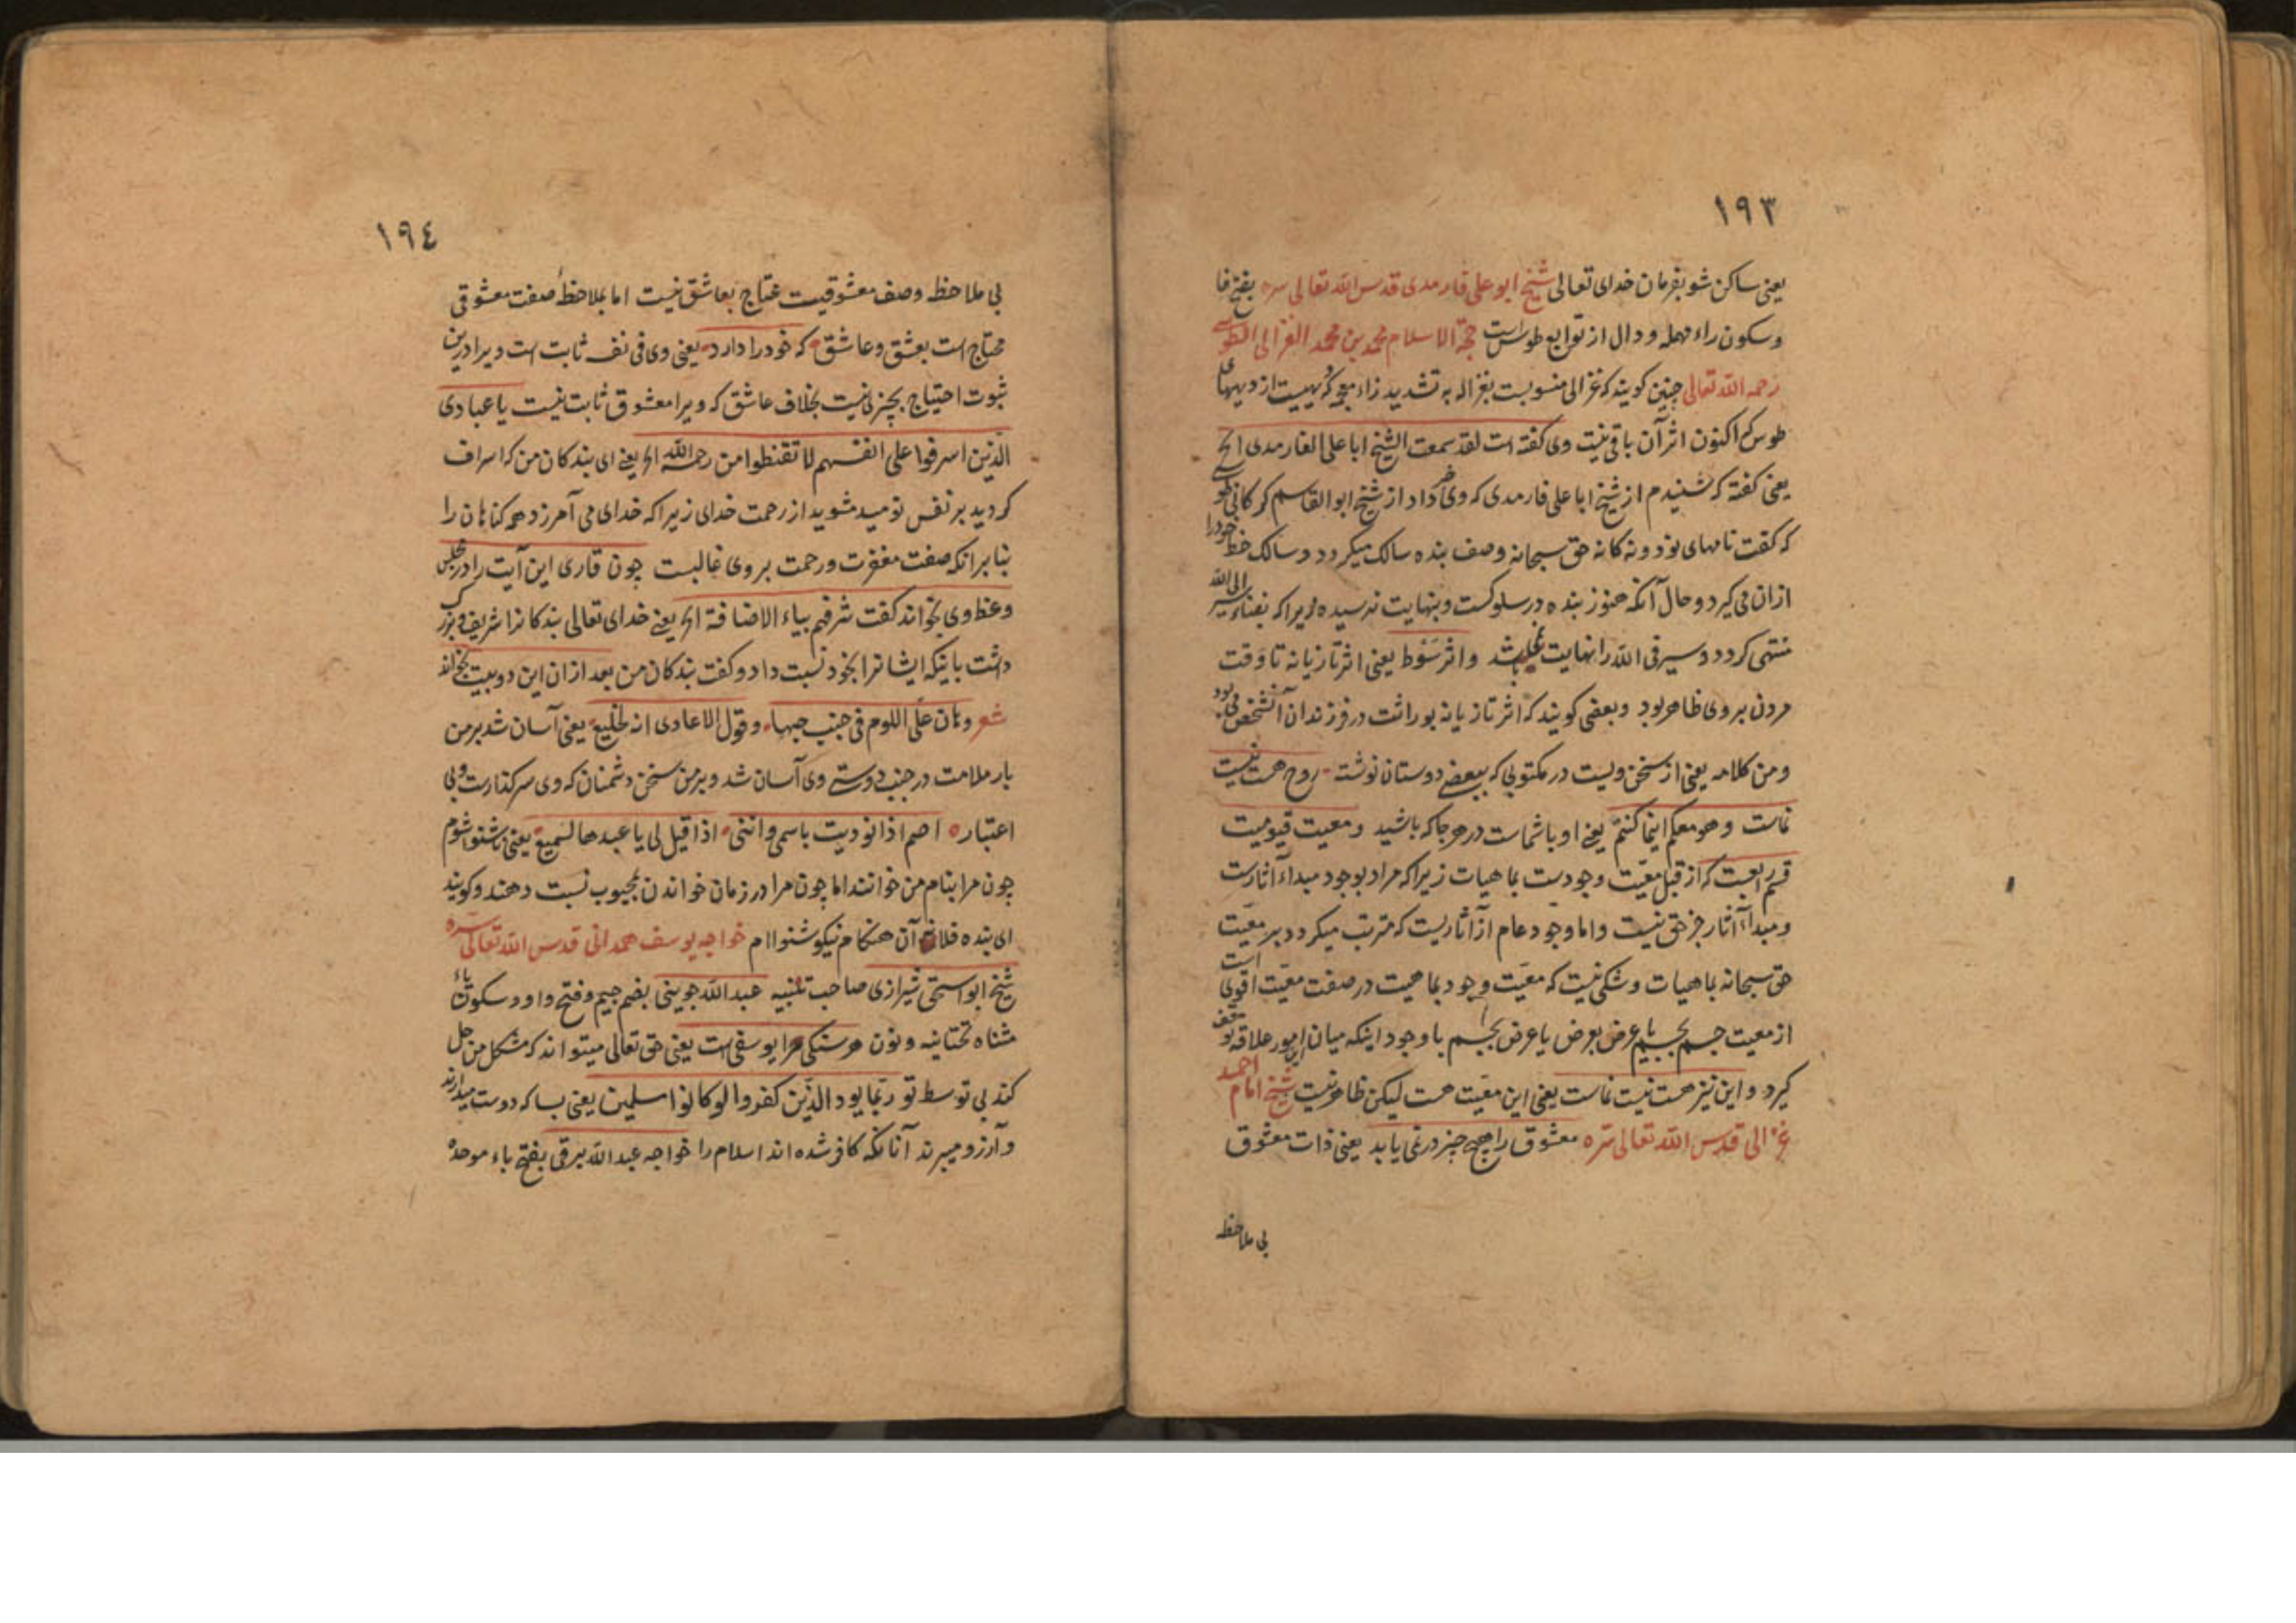 ١٩٣
یعنی ساکن شو بفرمان خدای تعالی شیخ ابو علی فارمدی قدس الله تعالی سره بفتح فا
وسکون راء مهمله و دال از توابع طوس است حجة الاسلام محمد بن محمد الغزالی الطوسی
رحمه الله تعالی چنین کویند که غزالی منسوبست بغزاله به تشدید زاء معجمه که دیهیست از دیههای
طوس که اکنون اثر آن باقی نیست وی کفته است لقد سمعت الشیخ ابا علی الفارمدی الخ
یعنی کفته که شنیدم از شیخ ابا علی فارمدی که وی خبر داد از شیخ ابو القاسم کرکانی طوسی
که کفت نامهای نود و نه کانه حق سبحانه وصف بنده سالک میکردد و سالک حظ خود را
ازان می کیرد و حال آنکه هنوز بنده در سلوکست و بنهایت نرسیده زیرا که بفناء سیر الی الله
منتهی کردد و سیر فی الله را نهایت نمی باشد واثر سَوْط یعنی اثر تازیانه تا وقت
مردن بر وی ظاهر بود وبعضی کویند که اثر تازیانه بوراثت در فرزندان آنشخص می بود
ومن کلامه یعنی از سخن ویست در مکتوبی که ببعضی دوستان نوشته روح هست نیست
نماست وهو معکم اینما کنتم یعنی او با شماست در هر جا که باشید ومعیت قیومیت
قسم رابعست که از قبل معیّت وجودست بماهیات زیرا که مراد بوجود مبداء آثارست
ومبداء آثار جز حق نیست واما وجود عام از آثاریست که مترتب میکردد بر معیّت
حق سبحانه بماهیات وشکی نیست که معیّت وجود بماهیت در صفت معیّت اقوی است
از معیت جسم بجسم یا عرض بعرض یا عرض بجسم با وجود اینکه میان این امور علاقه توقف
کیرد و این نیز هست نیست نماست یعنی این معیّت هست لیکن ظاهر نیست شیخ امام احمد
غزالی قدس الله تعالی سره معشوق را هیچ چیز در نمی یابد یعنی ذات معشوق
بی ملاحظه
١٩٤
بی ملاحظه وصف معشوقیت محتاج بعاشق نیست اما بملاحظهٔ صفت معشوقی
محتاج است بعشق وعاشق که خود را دارد یعنی وی فی نفسه ثابت است ویرا درین
ثبوت احتیاج بچیزی نیست بخلاف عاشق که ویرا معشوق ثابت نیست یا عبادی
الذین اسرفوا علی انفسهم لا تقنطوا من رحمة الله الخ یعنی ای بندکان من که اسراف
کردید بر نفس نومید مشوید از رحمت خدای زیرا که خدای می آمرزد همه کناهان را
بنا بر انکه صفت مغفرت و رحمت بر وی غالبست چون قاری این آیت را در مجلس
وعظ وی بخواند کفت شرفهم بیاء الاضافة الخ یعنی خدای تعالی بندکانرا شریف وبزرک
داشت باینکه ایشانرا بخود نسبت داد وکفت بندکان من بعد ازان این دو بیت بخواند
شعر وهان علّی اللوم فی جنب حبها وقول الاعادی انه لخلیع یعنی آسان شد بر من
بار ملامت در جنب دوستی وی آسان شد وبر من سخن دشمنان که وی سرکذارست وبی
اعتبار اصم اذا نودیت باسمی واننی اذا قیل لی یا عبدها لسمیع یعنی ناشنوا شوم
چون مرا بنام من خوانند اما چون مرا در زمان خواندن بمحبوب نسبت دهند وکویند
ای بنده فلان آن هنکام نیکو شنواام خواجه یوسف همدانی قدس الله تعالی سره
شیخ ابو اسحق شیرازی صاحب تنبیه عبدالله جوینی بضم جیم وفتح واو وسکون یاء
مثناه تحتانیه ونون هر سنکی مرا یوسفی است یعنی حق تعالی میتواند که مشکل من حل
کند بی توسط تو ربما یود الذین کفروا لو کانوا مسلمین یعنی بسا که دوست میدارند
وآرزو میبرند آنانکه کافر شده اند اسلام را خواجه عبدالله برقی بفتح باء موحده